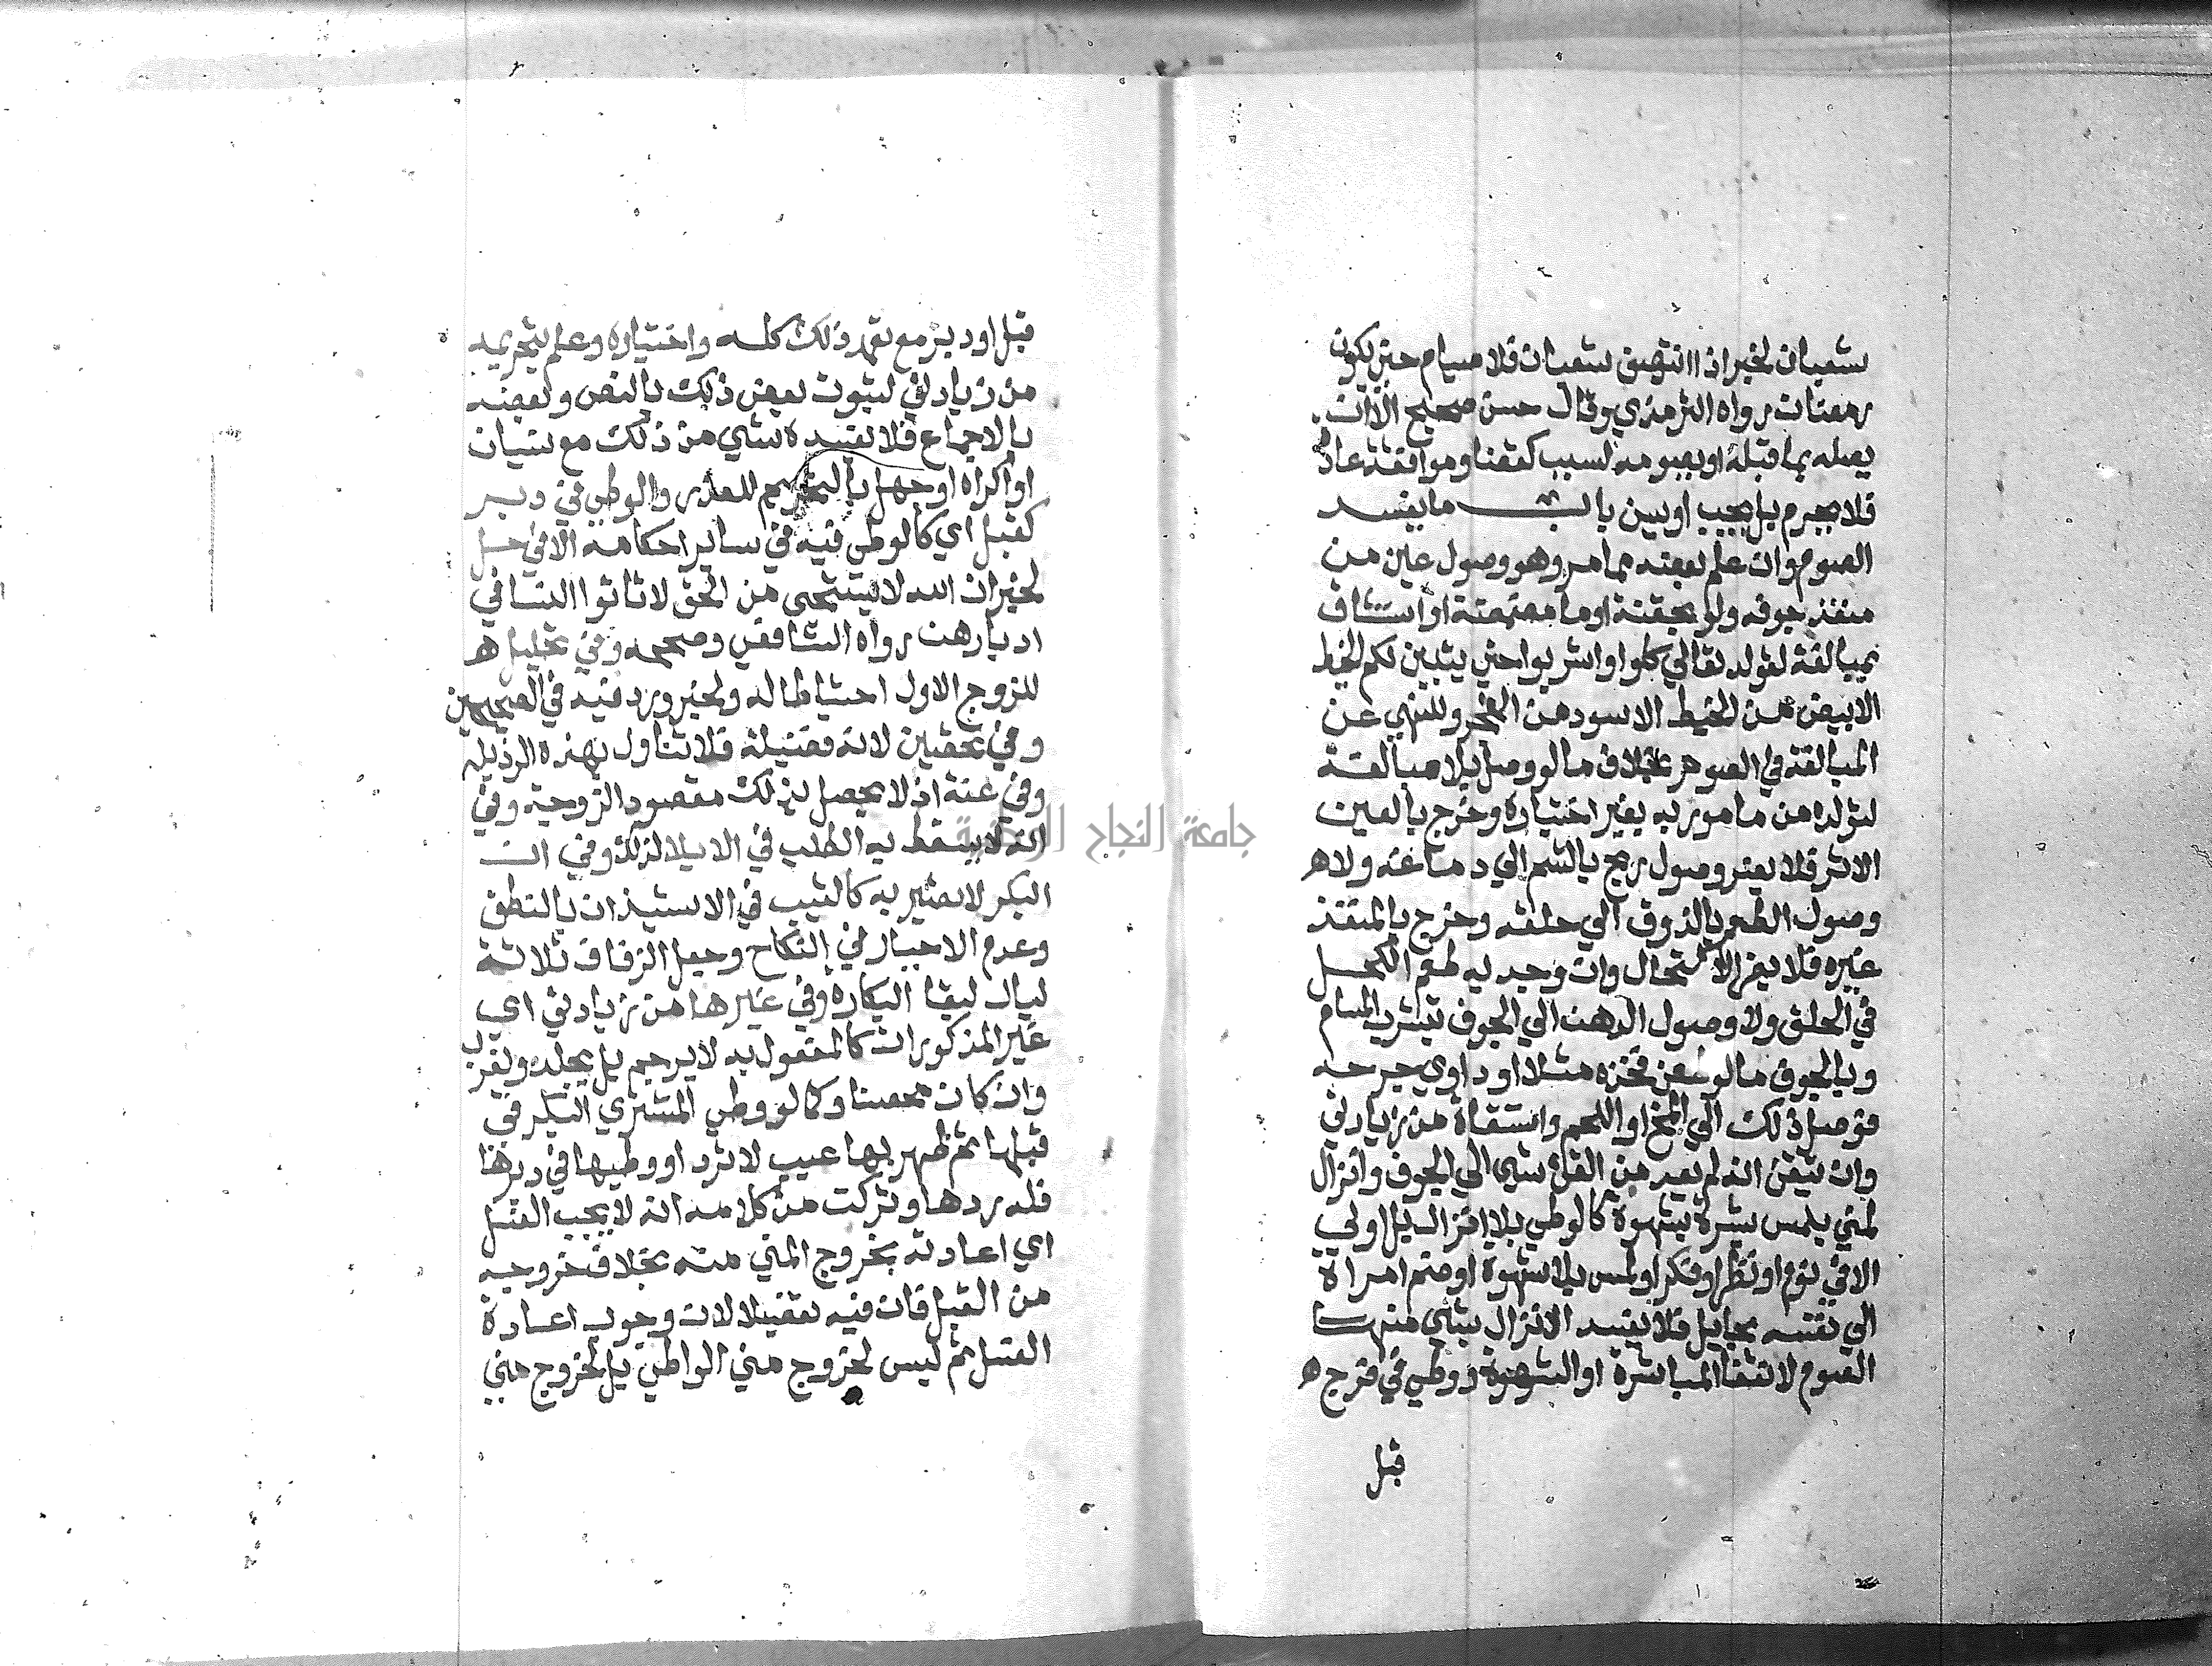 شعبان لخبر اذا انتصف شعبان فلا صيام حتى يكون
رمضان رواه الترمذي وقال حسن صحيح الا ان
يصله بما قبله او يصومه لسبب كقضا وموافقة عادة
فلا يحرم بل يجب او يسن باب ما يفسد
الصوم وان علم بعضه مما مر وهو وصول عين من
منفذ جوفه ولو بحقنة او ما مضمضة او استنشاق
بمبالغة لقوله تعالى كلوا واشربوا حتى يتبين لكم الخيط
الابيض من الخيط الاسود من الفجر وللنهي عن
المبالغة في الصوم بخلاف ما لو وصل بلا مبالغة
لتولده من مامور به بغير اختياره وخرج بالعين
الاثر فلا يضر وصول ريح بالشم الى دماغه ولا
وصول الطعم بالذوق الى حلقه وخرج بالمنفذ
غيره فلا يضر الاكتحال وان وجد به طعم الكحل
في الحلق ولا وصول الدهن الى الجوف بتشرب المسام
وبالجوف ما لو طعن فخذه مثلا او داوى جرحه
فوصل ذلك الى المخ او اللحم واستقاة من زيادتي
وان تيقن انه لم يعد من القئ شي الى الجوف وانزال
لمني بلمس بشرة بشهوة كالوطي بلا انزال بل اولى
لا في نوم او نظر او فكر او لمس بلا شهوة او ضم امراة
الى نفسه بحايل فلا يفسد الانزال بشي منها
الصوم لانتفا المباشرة او الشهوة ووطي في فرج
قبل
قبل او دبر مع تعمد ذلك كله واختياره وعلم بتحريمه
من زيادتي لثبوت بعض ذلك بالنص وبعضه
بالاجماع فلا يفسده شي من ذلك مع نسيان
او اكراه او جهل بالتحريم للعذر والوطي في دبر
كقبل اي كالوطي فيه في ساير احكامه الا في حل
لخبر ان الله لا يستحيى من الحق لا تاتوا النسا في
ادبارهن رواه الشافعي وصححه وفي تحليل
للزوج الاول احتياطا له ولخبر ورد فيه في الصحيحين
وفي تحصين لانه فضيلة فلا تناول بهذه الرذيلة
وفي عنة اذ لا يحصل بذلك مقصود الزوجية وفي
انه لا يسقط به الطلب في الايلا لذلك وفي ان
البكر لا تصير به كالثيب في الاستيذان بالنطق
وعدم الاجبار في النكاح وجعل الزفاف ثلاثة
ليال لبقا البكارة وفي غيرها من زيادتي اي
غير المذكورات كالمفعول به لا يرجم بل يجلد ويغرب
وان كان محصنا وكما لو وطي المشتري البكر في
قبلها ثم ظهر بها عيب لا ترد او وطيها في دبرها
فله ردها وتركت من كلامه انه لا يجب الغسل
اي اعادته بخروج المني منه بخلاف خروجه
من القبل فان فيه تفضيلا لان وجوب اعادة
الغسل ثم ليس لخروج مني الواطي بل لخروج مني
جامعة النجاح الوطنية